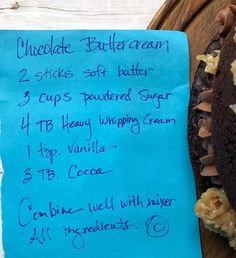 Chocolate Buttercream
2 sticks soft butter
3 cups powdered Sugar
4 TB Heavy Whipping Cream
1 tsp. Vanilla
3 TB. Cocoa
Combine well with mixer
All ingredients.